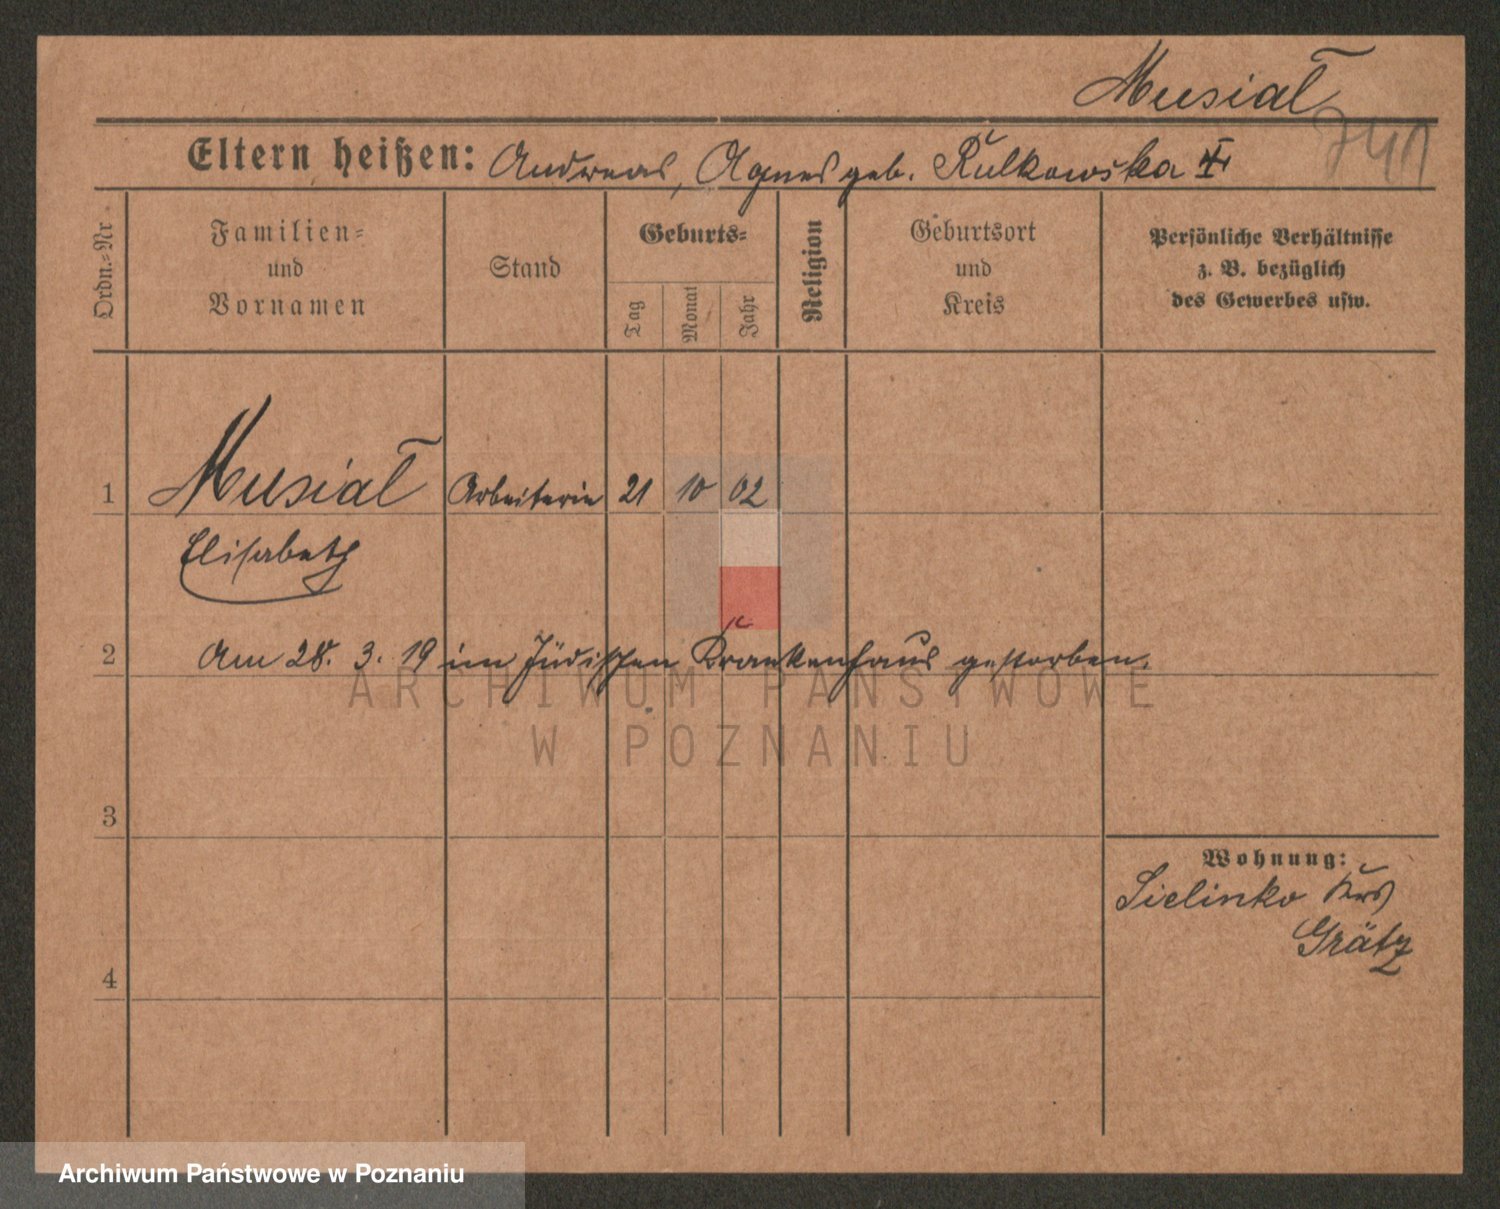 Musiał
741
Eltern heißen: Andreas, Agnes geb. Kulkowska
Ordn.=Nr
Familien=
und
Vornamen
Stand
Geburts=
Tag
Monat
Jahr
Religion
Geburtsort
und
Kreis
Persönliche Verhältnisse
z. B. bezüglich
des Gewerbes usw.
1 Musiał Arbeiterin 21 10 02
Elisabeth
2 Am 28. 3. 19 im Jüdischen Krankenhaus gestorben.
ARCHIWUM PAŃSTWOWE
W POZNANIU
3
Wohnung:
Sielinko Krs
Grätz
4
Archiwum Państwowe w Poznaniu